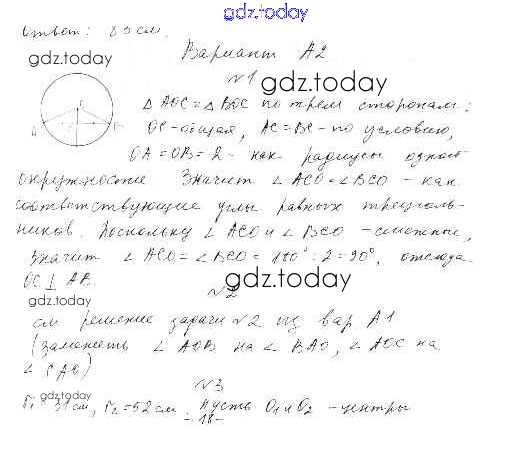 gdz.today
Ответ: 83 см.
gdz.today
Вариант А2
№1
gdz.today
△ AOC = △ BOC по трем сторонам:
OC - общая, AC = BC - по условию,
OA = OB = R - как радиусы одной
окружности. Значит ∠ ACO = ∠ BCO - как
соответствующие углы равных треуголь-
ников. Поскольку ∠ ACO и ∠ BCO - смежные,
значит ∠ ACO = ∠ BCO = 180° : 2 = 90°, отсюда
OC ⊥ AB.
gdz.today
№2
gdz.today
см решение задачи №2 из вар. А1
(заменить ∠ AOB на ∠ BAO, ∠ AOC на
∠ CAO)
№3
gdz.today
r₁ = 31 см, r₂ = 52 см. Пусть O₁ и O₂ - центры
- 18 -